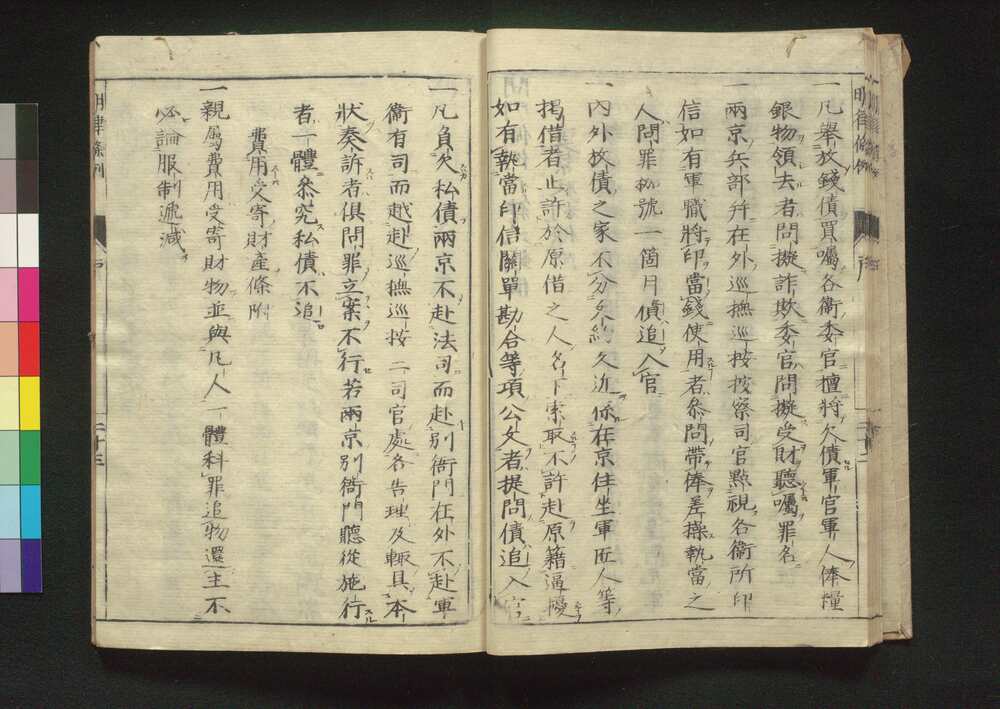 一凡舉放錢債買囑各衞委官擅將欠債軍官軍人俸糧
銀物領去者問擬詐欺委官問擬受財聽囑罪名
一兩京兵部并在外巡撫巡按按察司官點視各衞所印
信如有軍職將印當錢使用者叅問帶俸差操執當之
人問罪枷號一箇月債追入官
一內外放債之家不分文約久近係在京住坐軍匠人等
揭借者止許於原借之人名下索取不許赴原籍逼擾
如有執當印信關單勘合等項公文者提問債追入官
一凡負欠私債兩京不赴法司而赴別衙門在外不赴軍
衞有司而越赴巡撫巡按三司官處各告理及輙具本
狀奏訴者俱問罪立案不行若兩京別衙門聽從施行
者一體叅究私債不追
費用受寄財產條附
一親屬費用受寄財物並與凡人一體科罪追物還主不
必論服制遞減
明律條例
戶
二十三